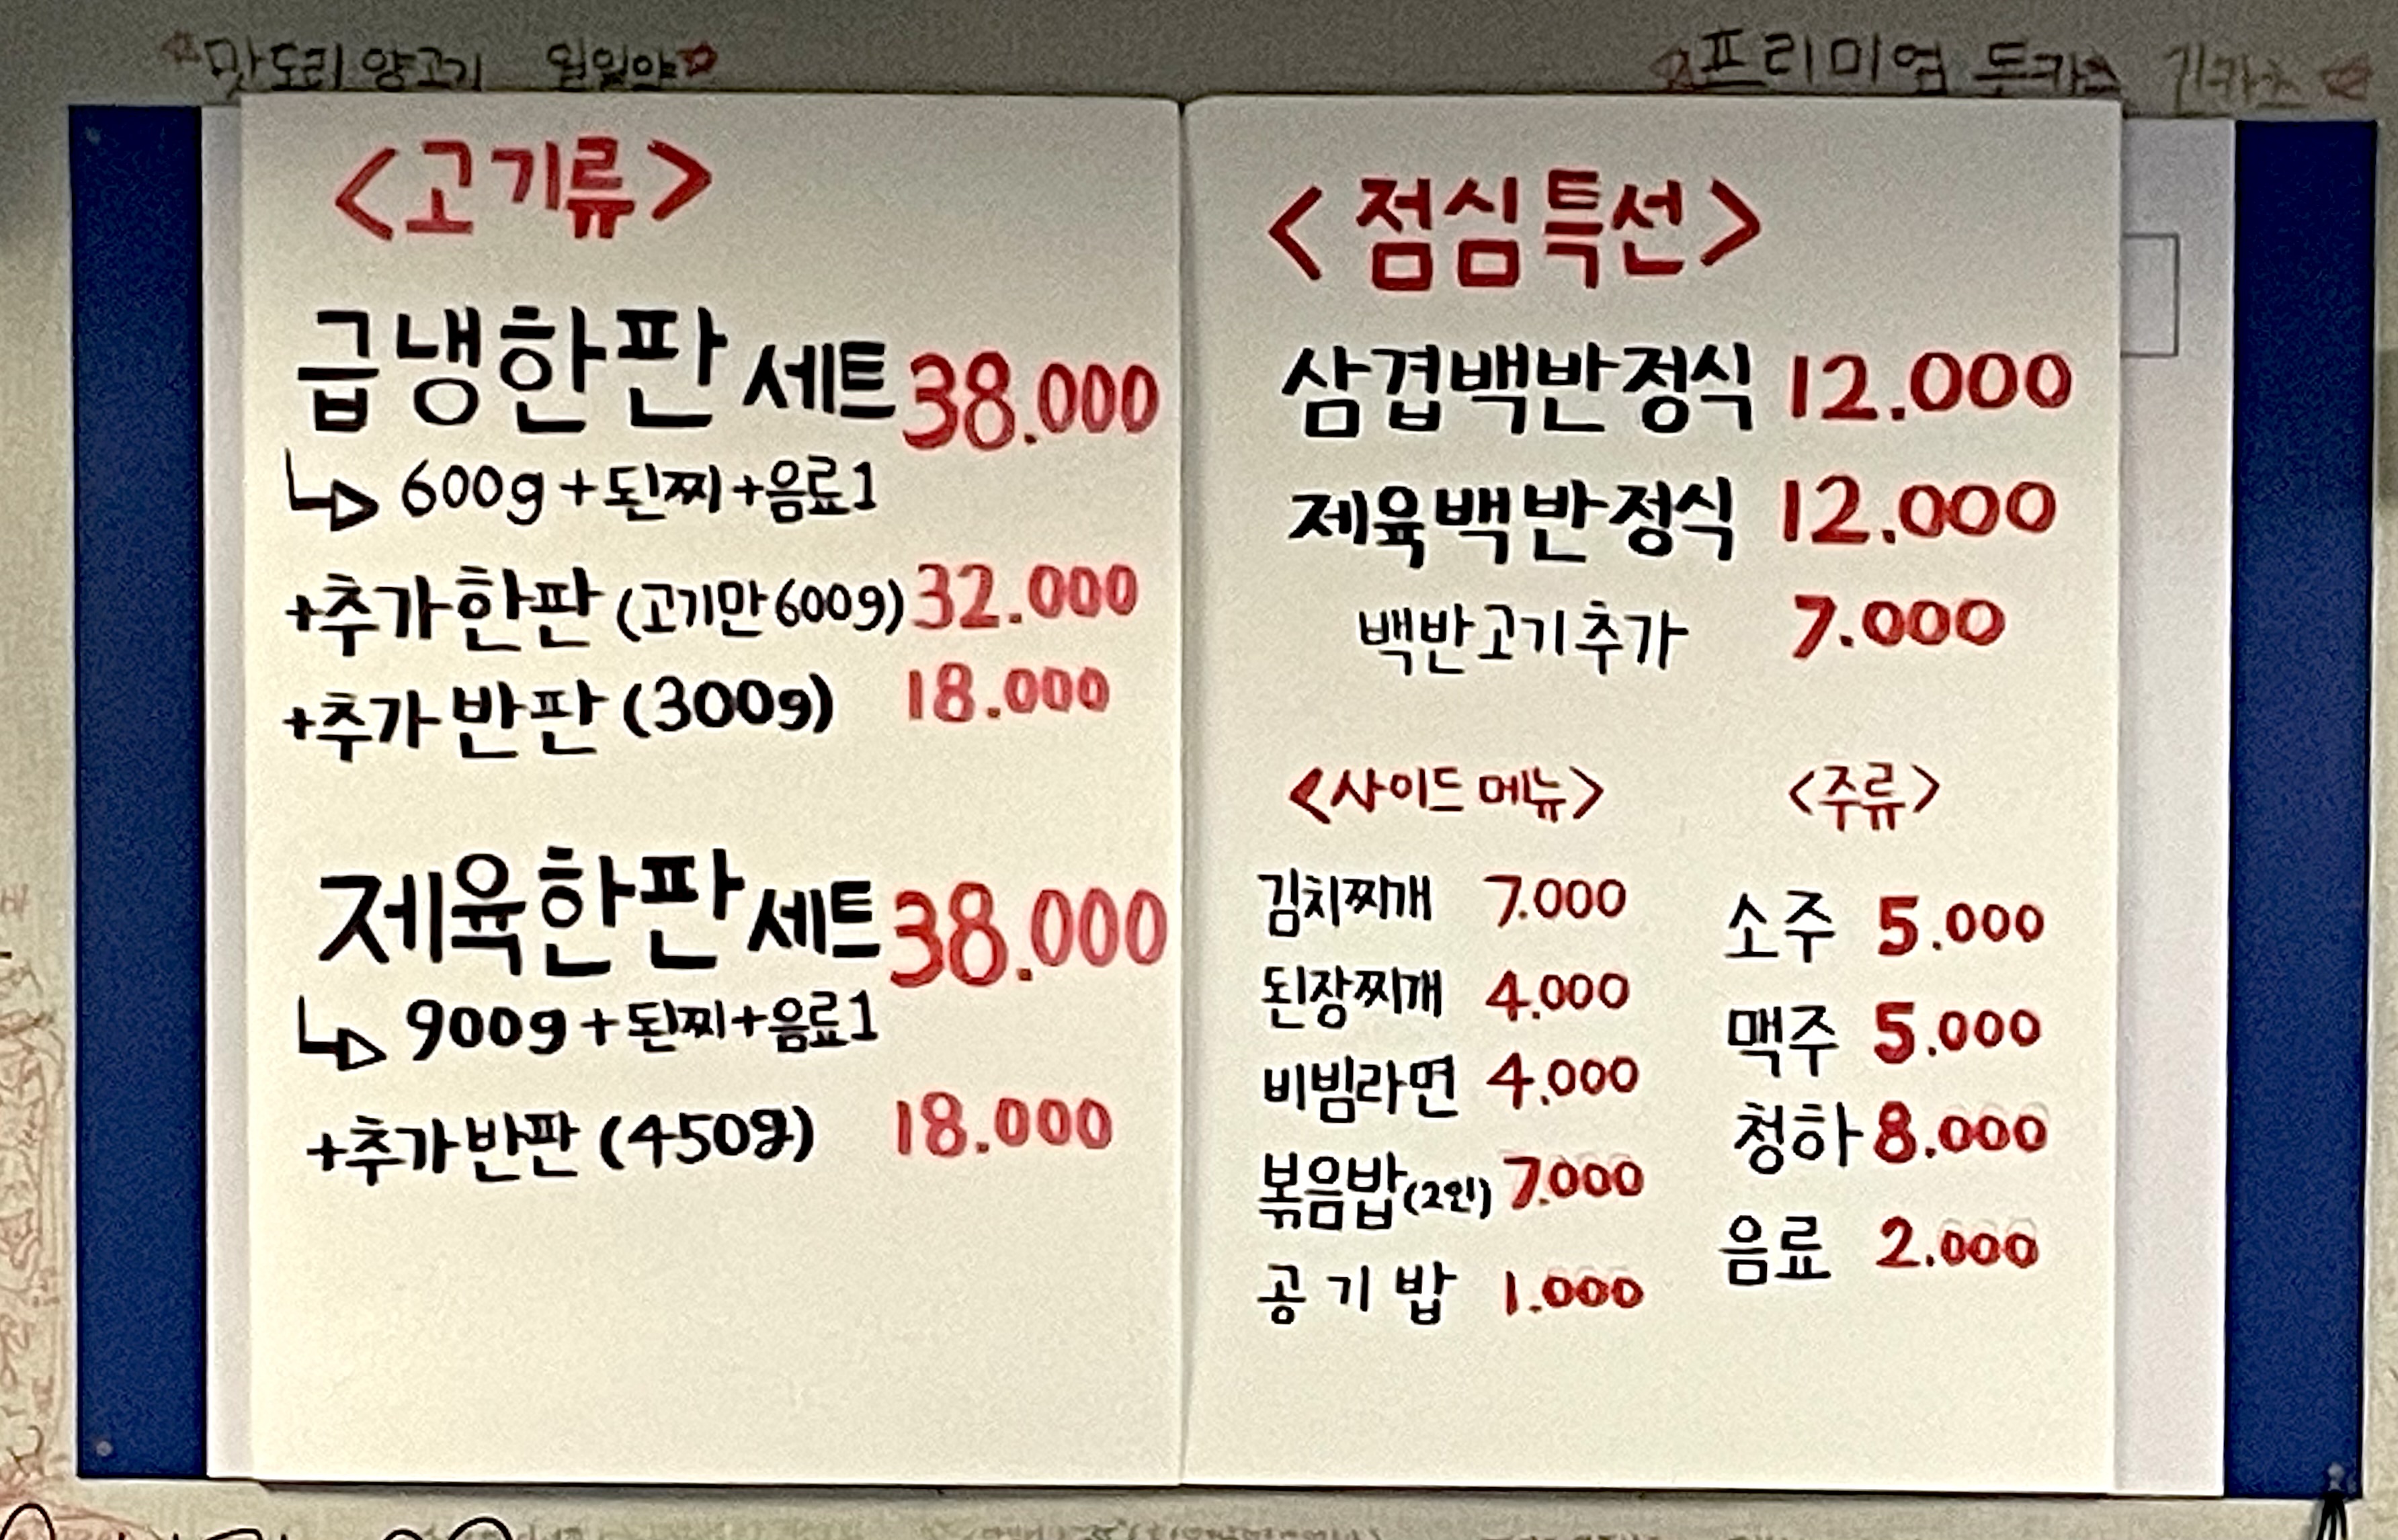 맛도리 양고기
프리미엄 돈카츠
<고기류>
급냉한판 세트 38.000
600g+된찌+음료1
+추가한판 (고기만 600g) 32.000
+추가반판 (300g) 18.000
제육한판 세트 38.000
900g+된찌+음료1
+추가반판 (450g) 18.000
<점심특선>
삼겹백반정식 12.000
제육백반정식 12.000
백반고기추가 7.000
<사이드 메뉴>
김치찌개 7.000
된장찌개 4.000
비빔라면 4.000
볶음밥(2인) 7.000
공기밥 1.000
<주류>
소주 5.000
맥주 5.000
청하 8.000
음료 2.000